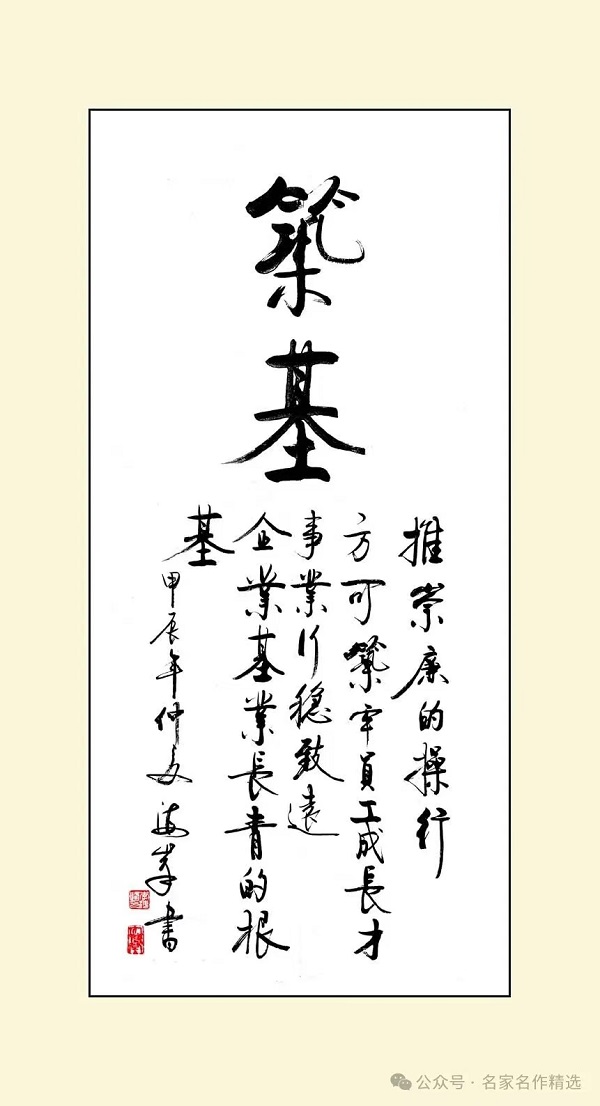 築基
推崇廉的操行
方可築牢員工成長才
事業行穩致遠
企業基業長青的根
基
甲辰年仲夏海峯書
公众号·名家名作精选